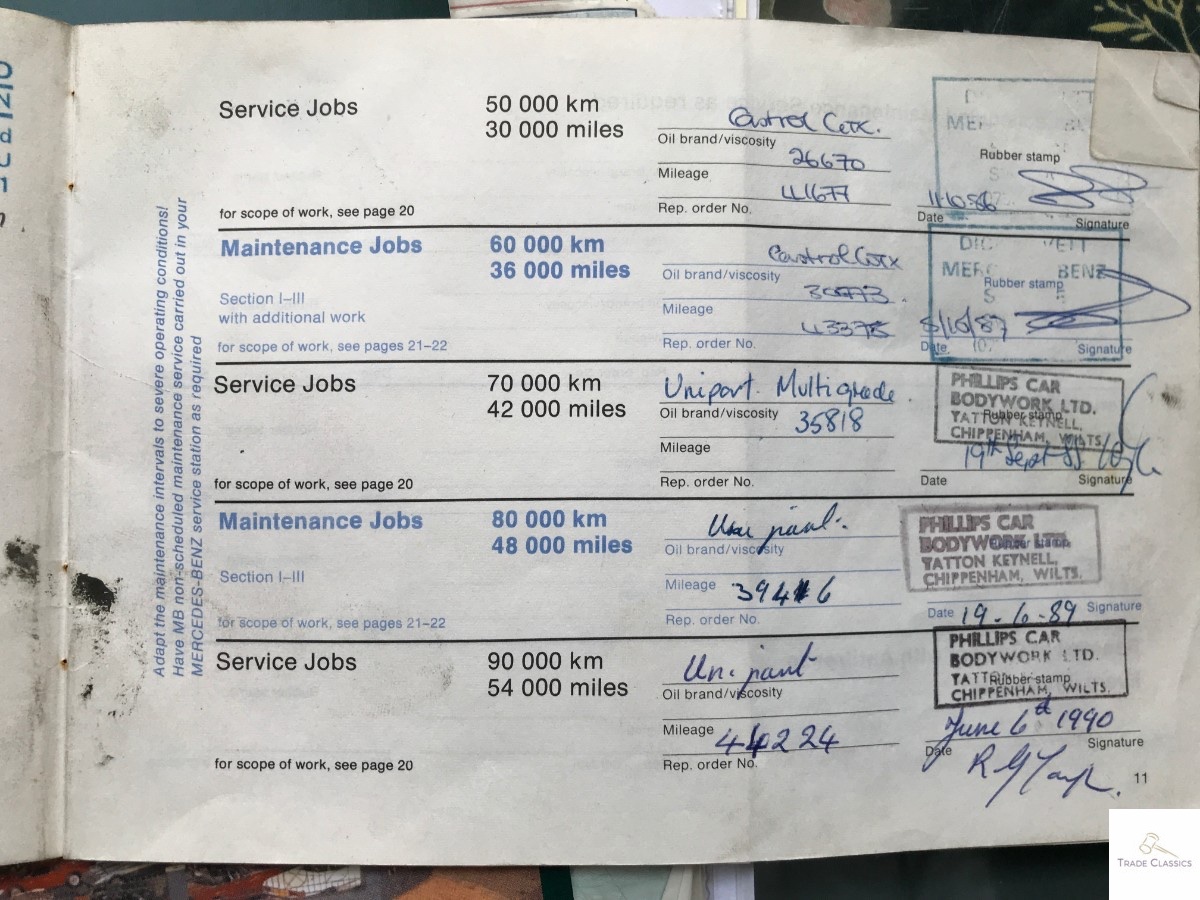 Adapt the maintenance intervals to severe operating conditions!
Have MB non-scheduled maintenance service carried out in your
MERCEDES-BENZ service station as required
Service Jobs
50 000 km
30 000 miles
for scope of work, see page 20
Castrol
Oil brand/viscosity
26670
Mileage
41677
Rep. order No.
Rubber stamp
Date
Signature
Maintenance Jobs
60 000 km
36 000 miles
Section I–III
with additional work
for scope of work, see pages 21–22
Castrol
Oil brand/viscosity
Mileage
Rep. order No.
BENZ
Rubber stamp
8/10/87
Date
Signature
Service Jobs
70 000 km
42 000 miles
for scope of work, see page 20
Unipart. Multigrade
Oil brand/viscosity
35818
Mileage
Rep. order No.
PHILLIPS CAR
BODYWORK LTD.
Rubber stamp
TATTON KEYNELL,
CHIPPENHAM, WILTS.
19th Sept 88
Date
Signature
Maintenance Jobs
80 000 km
48 000 miles
Section I–III
for scope of work, see pages 21–22
Unipart.
Oil brand/viscosity
Mileage 39416
Rep. order No.
PHILLIPS CAR
BODYWORK LTD.
TATTON KEYNELL,
CHIPPENHAM, WILTS.
Date 19-6-89 Signature
Service Jobs
90 000 km
54 000 miles
for scope of work, see page 20
Unipart
Oil brand/viscosity
Mileage 44224
Rep. order No.
PHILLIPS CAR
BODYWORK LTD.
Rubber stamp
CHIPPENHAM, WILTS.
June 6th 1990
Date
Signature
11
TRADE CLASSICS